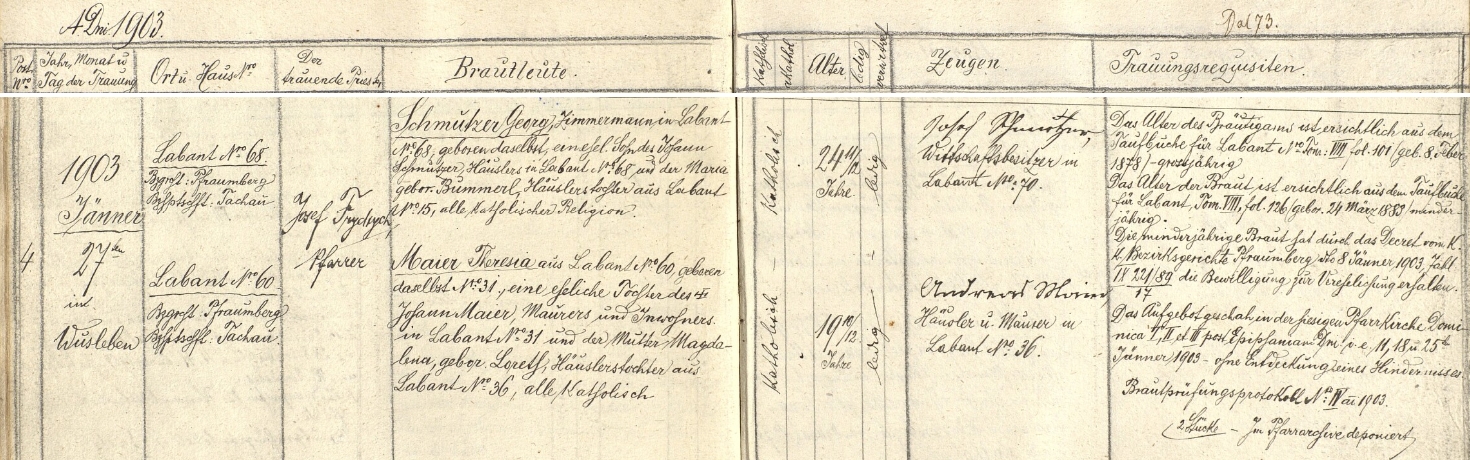 A Dni 1903.
Pal 73.
Post Nro
Jahr, Monat u Tag der Trauung
Ort u. Haus Nro
Der trauende Priester
Brautleute.
Katholisch
akathol
Alter
ledig
verwitwet
Zeugen
Trauungsrequisiten.
4
1903
Jänner
27ten
in
Wusleben
Labant Nro 68
Bzgrcht: Pfraumberg
Bzhptschft: Tachau
Labant Nro 60
Bzgrcht. Pfraumberg
Bzhptschft. Tachau.
Josef Frydrych
Pfarrer
Schmutzer Georg, Zimmermann, in Labant
Nro 68, geboren daselbst, ein ehel. Sohn des Johann
Schmutzer, Häuslers in Labant Nro 68 und der Maria
gebor. Bummerl, Häuslerstochter aus Labant
Nro 15, alle katholischer Religion.
Maier Theresia aus Labant Nro 60, geboren
daselbst Nro 31, eine eheliche Tochter des ‡
Johann Maier, Maurers und Inwohners
in Labant Nro 31 und der Mutter Magda-
lena, gebor. Loreth, Häuslerstochter aus
Labant Nro 36, alle katholisch
Katholisch –
Katholisch –
24 11/12
Jahre
19 10/12
Jahre
ledig
ledig
Josef Schmutzer,
Wirtschaftsbesitzer in
Labant Nro 70.
Andreas Maier
Häusler u. Maurer in
Labant No. 36.
Das Alter des Bräutigams ist ersichtlich aus dem
Taufbuche für Labant Nro Tom: VIII fol. 101 /geb. 8. Feber
1878/ – großjährig
Das Alter der Braut ist ersichtlich aus dem Taufbuche
für Labant, Tom. VIII, fol. 126 /gebor. 24 März 1883/ minder-
jährig.
Die minderjährige Braut hat durch das Decret vom K.
K. Bezirksgerichte Pfraumberg dto 8 Jänner 1903, Zahl
die Bewilligung zur Verehelichung erhalten.
17
Das Aufgebot geschah in der hiesigen Pfarrkirche Domi-
nica I, II et III post Epiphaniam Dmi. i. e. 11, 18 u 25ten
Jänner 1903 – ohne Entdeckung eines Hindernisses.
Brautprüfungsprotokoll Nro IV ai 1903.
2 Stücke – Im Pfarrarchive deponiert